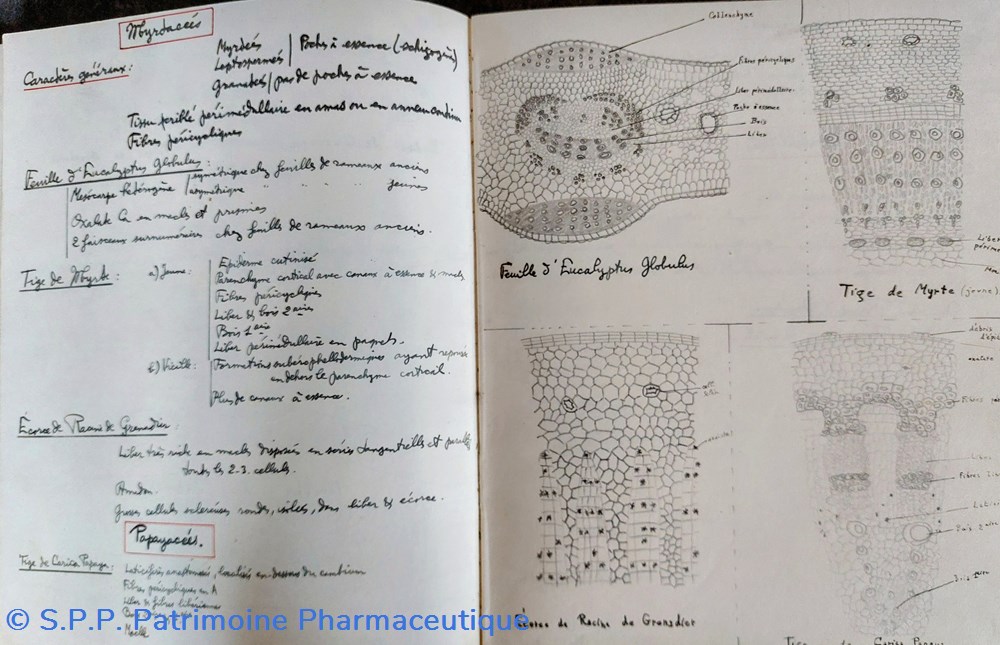 Myrtacées
Caractères généraux :
Myrtées
Leptospermées
Poches à essence (schizogènes)
Granatées / pas de poches à essence
Tissu criblé périmédullaire en amas ou en anneau continu
Fibres péricycliques
Feuille d'Eucalyptus Globulus :
Mésocarpe hétérogène symétrique chez feuille de rameaux anciens
asymétrique " " " jeunes
Oxalate Ca en macles et prismes
2 faisceaux surnuméraires chez feuille de rameaux anciens.
Tige de Myrte : a) Jeune :
Epiderme cutinisé
Parenchyme cortical avec canaux à essence & macles
Fibres péricycliques
Liber & bois 2aires
Bois 1aire
Liber périmédullaire en paquets.
b) Vieille : Formations subérophellodermiques ayant repoussé
en dehors le parenchyme cortical.
Plus de canaux à essence.
Écorce de Racine de Grenadier :
Liber très riche en macles disposées en séries tangentielles et
toutes les 2-3 cellules.
Amidon.
Grosses cellules scléreuses rondes, isolées, dans liber & écorce.
Papayacées.
Tige de Carica Papaya : Laticifères anastomosés, localisés en dessous du cambium
Fibres péricycliques en A
Liber & fibres libériennes
Moelle
Collenchyme
Fibres péricycliques
Liber périmédullaire
Poche à essence
Bois
Liber
Feuille d'Eucalyptus Globulus
Liber
Tige de Myrte (jeune)
débris
Fibres
Liber
Fibres
Bois 2aire
Bois 1aire
Écorce de Racine de Grenadier
Tige de Carica Papaya
© S.P.P. Patrimoine Pharmaceutique